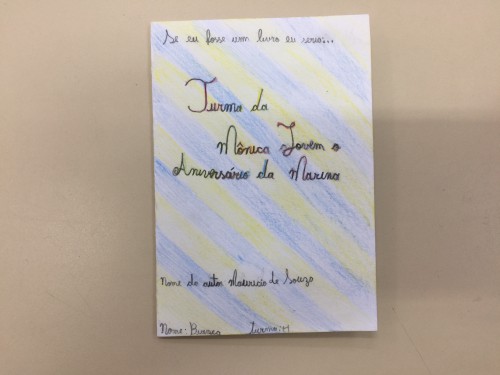 Se eu fosse um livro eu seria:...
Turma da
Mônica Jovem o
Aniversário da Marina
Nome do autor Mauricio de Souza
Nome: Bianca turma: